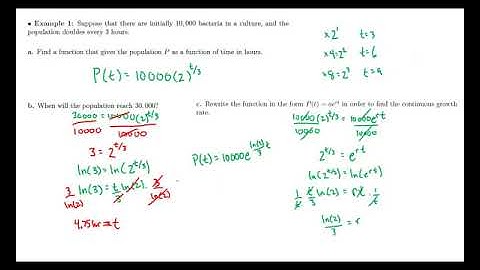 • Example 1: Suppose that there are initially 10,000 bacteria in a culture, and the
population doubles every 3 hours.
×2¹ t=3
×4=2² t=6
×8=2³ t=9
a. Find a function that gives the population P as a function of time in hours.
P(t) = 10000(2)^(t/3)
b. When will the population reach 30,000?
30000 = 10000(2)^(t/3)
10000 10000
3 = 2^(t/3)
ln(3) = ln(2^(t/3))
3/ln(2) · ln(3) = t/3 ln(2) · 3/ln(2)
4.75hr = t
c. Rewrite the function in the form P(t) = ae^(rt) in order to find the continuous growth
rate.
10000(2)^(t/3) = 10000e^(rt)
10000 10000
2^(t/3) = e^(rt)
ln(2^(t/3)) = ln(e^(rt))
1/t · t/3 ln(2) = rt · 1/t
ln(2)/3 = r
P(t) = 10000e^(ln(2)/3 t)